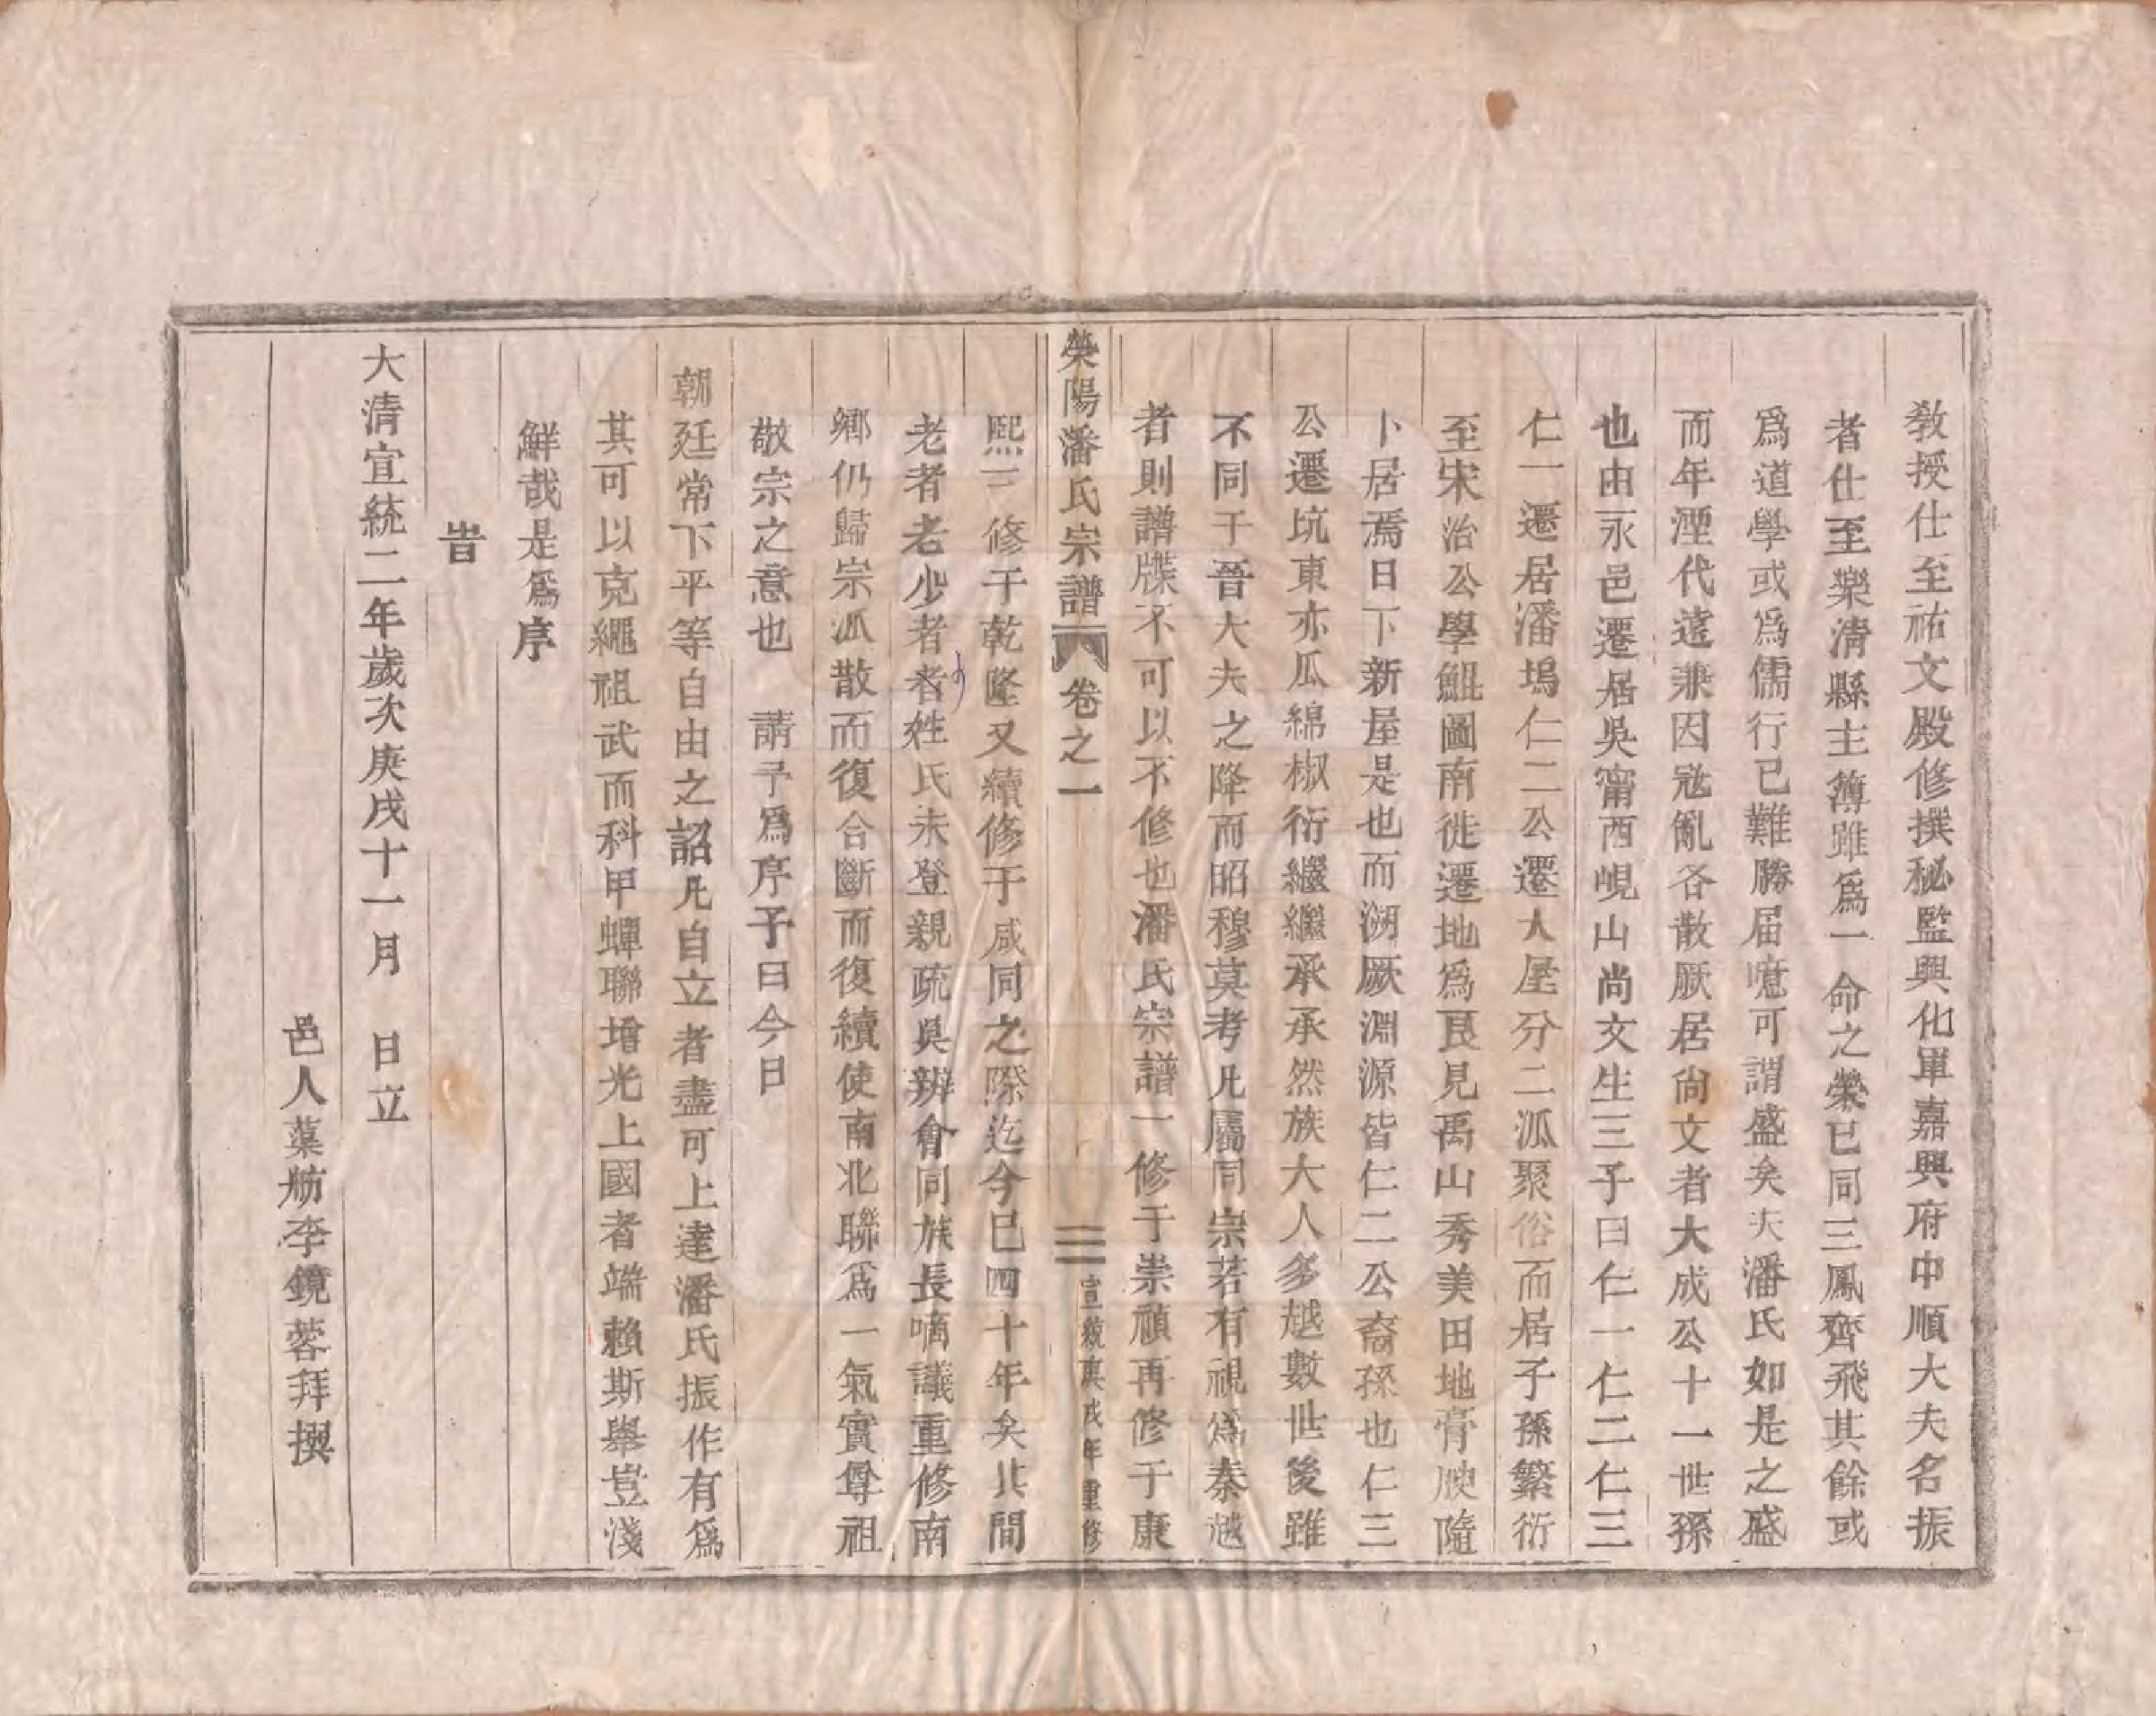 敎授仕至祐文殿修撰秘監興化軍嘉興府中順大夫名振
者仕至樂淸縣主簿雖爲一命之榮已同三鳳齊飛其餘或
爲道學或爲儒行已難勝屈噫可謂盛矣夫潘氏如是之盛
而年湮代遠兼因冦亂各散厥居尙文者大成公十一世孫
也由永邑遷居吳甯西峴山尚文生三子曰仁一仁二仁三
仁一遷居潘塢仁二公遷人屋分二派聚俗而居子孫繁衍
至宋治公學鯤圖南徙遷地爲良見禹山秀美田地膏腴隨
卜居焉日下新屋是也而溯厥淵源皆仁二公裔孫也仁三
公遷坑東亦瓜綿椒衍繼繼承承然族大人多越數世後雖
不同于晉大夫之降而昭穆莫考凡屬同宗若有視爲秦越
者則譜牒不可以不修也潘氏宗譜一修于崇禎再修于康
滎陽潘氏宗譜 卷之一 三 宣統庚戌年重修
熙三修于乾隆又續修于咸同之際迄今已四十年矣其間
老者老少者者姓氏未登親疏莫辨會同族長啇議重修南
鄉仍歸宗派散而復合斷而復續使南北聯爲一氣實尊祖
敬宗之意也 請予爲序予曰今日
朝廷常下平等自由之詔凡自立者盡可上達潘氏振作有爲
其可以克繩祖武而科甲蟬聯增光上國者端賴斯舉豈淺
鮮哉是爲序
旹
大清宣統二年歲次庚戌十一月 日立
邑人蕖舫李鏡蓉拜撰